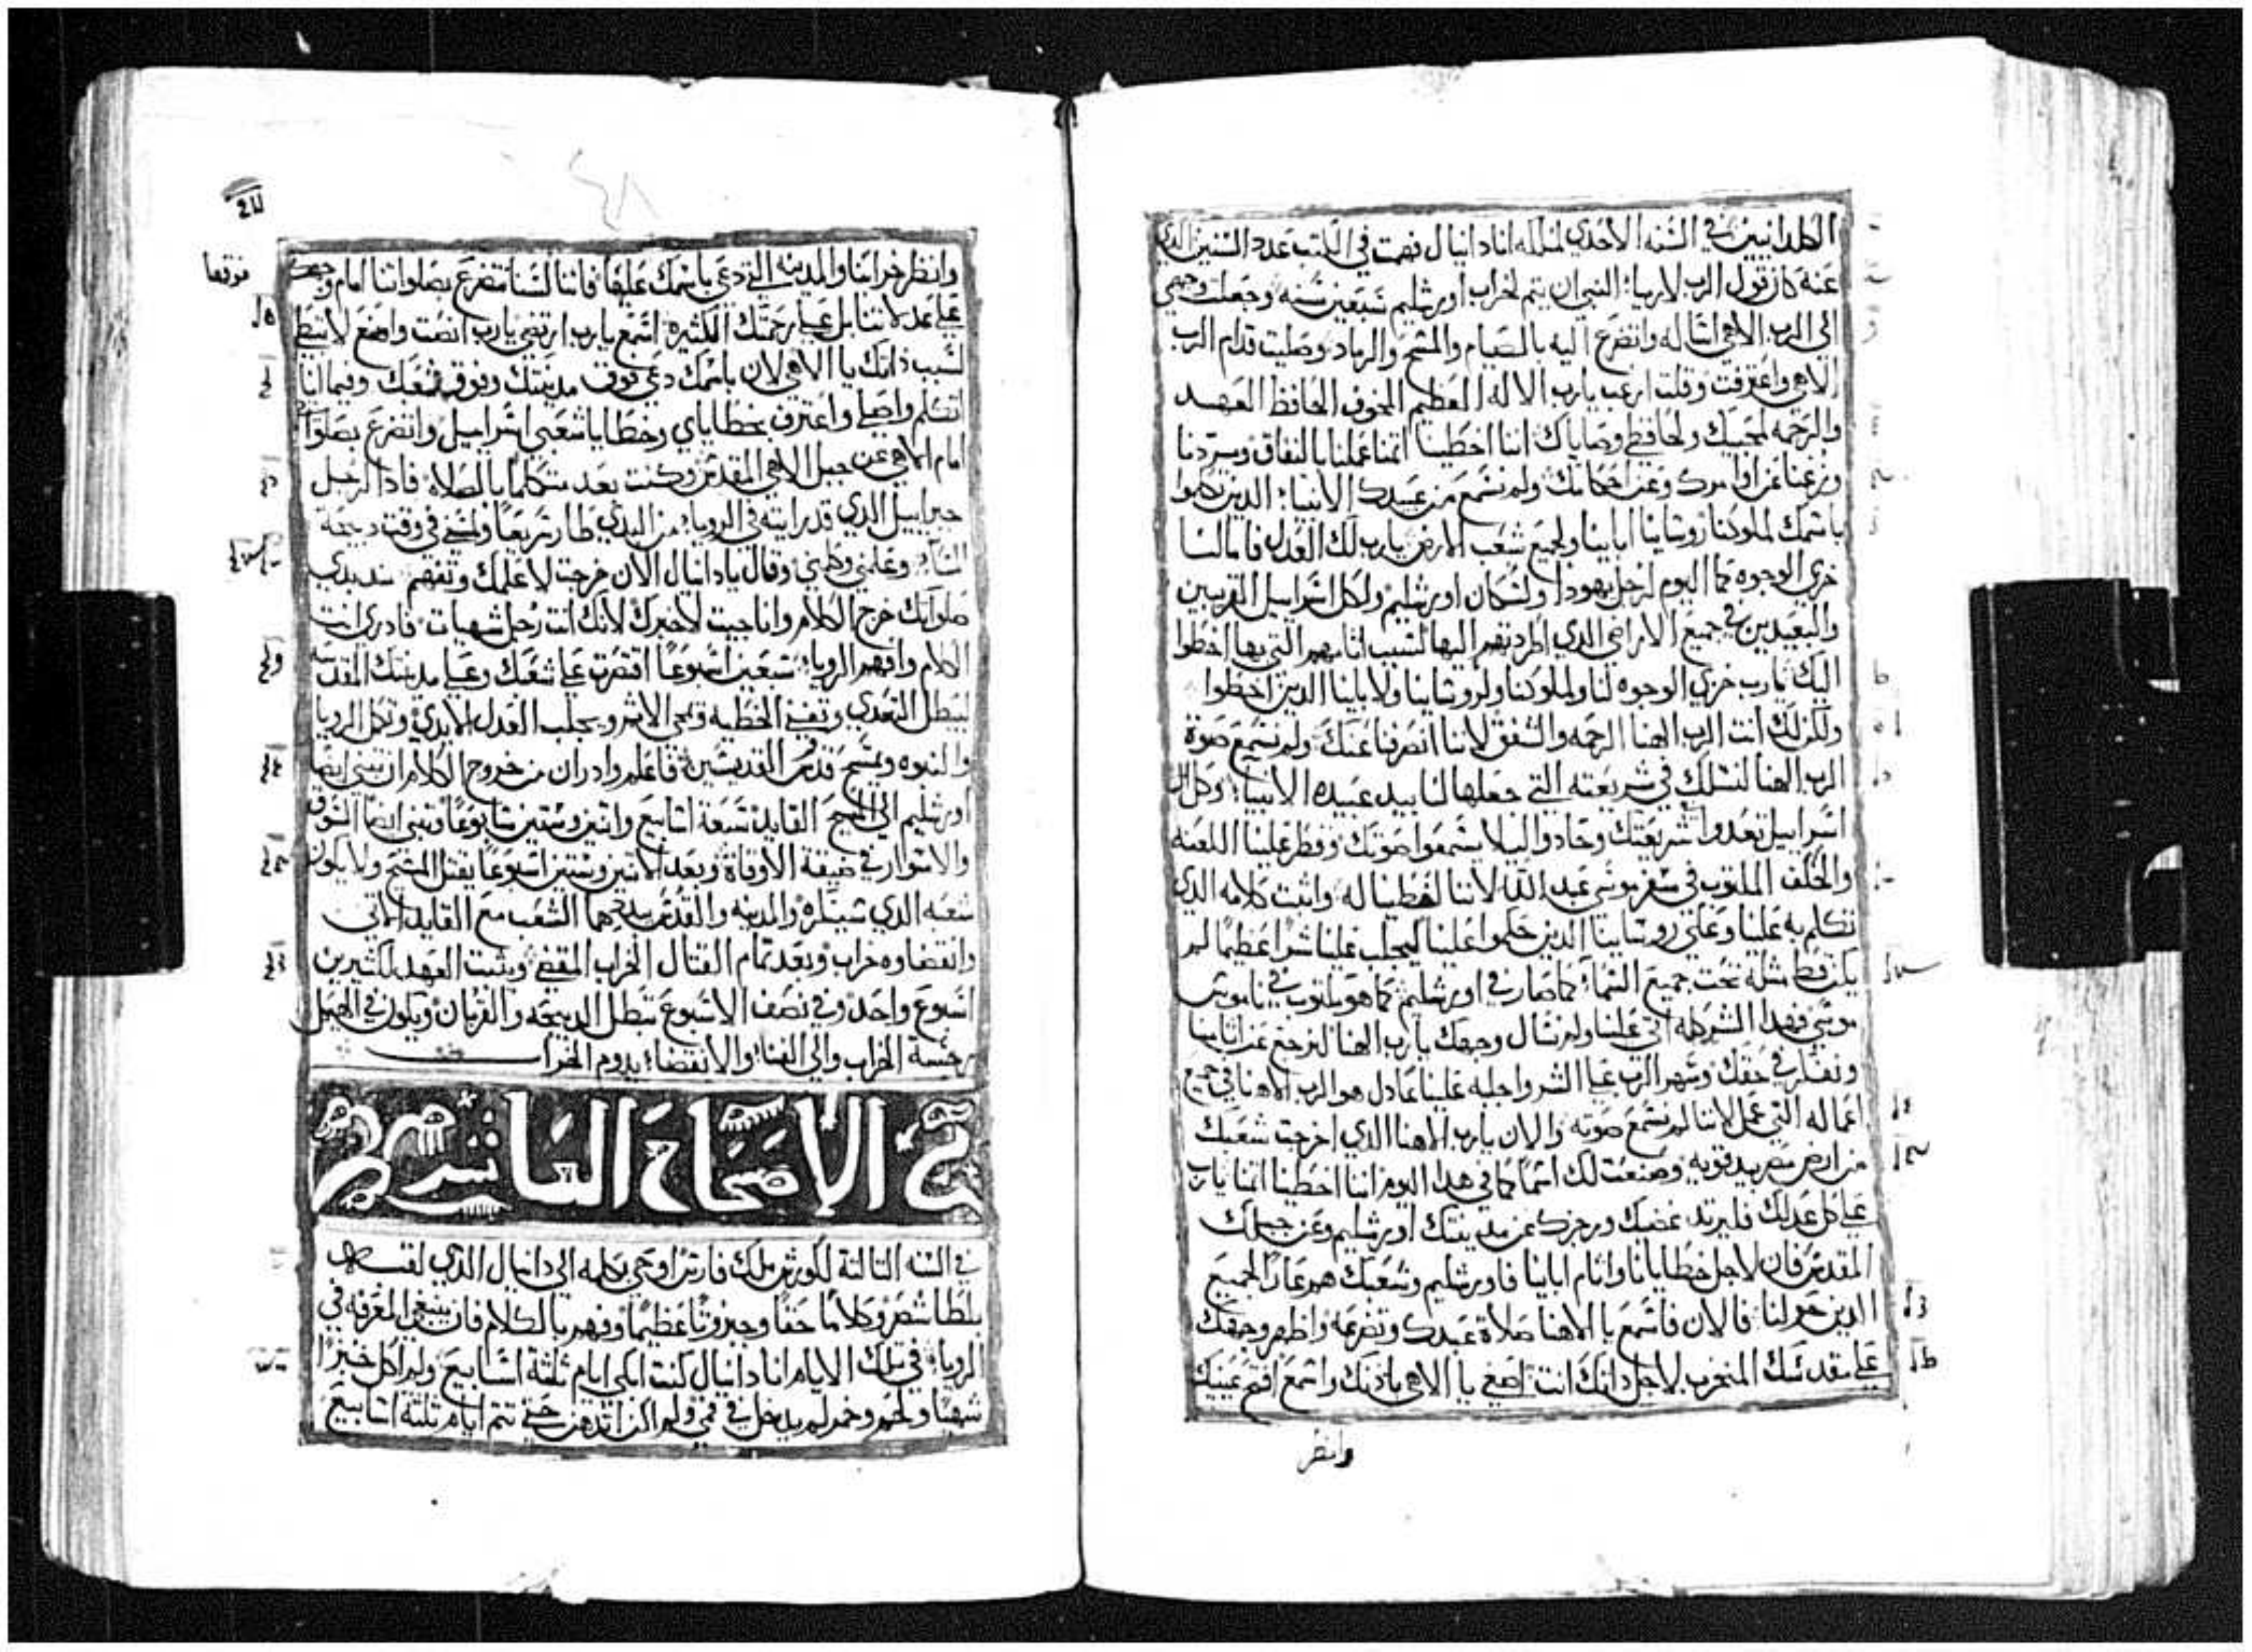 الكلدانيين في السنه الاحدي لملكه انا دانيال فهمت في الكتب عدد السنين الذي
عنه كان قول الرب لارميا النبي ان يتم لخراب اورشليم سبعين سنه وجعلت وجهي
الي الرب الاهي اساله واتضرع اليه بالصيام والمسح والرماد وصليت قدام الرب
الاهي واعترفت وقلت ارغب يارب الاله العظيم المخوف الحافظ العهد
والرحمه لمحبيك ولحافظي وصاياك اننا اخطينا اثمنا عملنا بالنفاق ومردنا
وزغنا عن اوامرك وعن احكامك ولم نسمع من عبيدك الانبياء الذين تكلموا
باسمك لملوكنا روساينا اباينا ولجميع شعب الارض يارب لك العدل فاما لنا
خزي الوجوه كما اليوم لرجل يهودا ولسكان اورشليم ولكل اسراييل القريبين
والبعيدين في جميع الاراضي الذي اطردتهم اليها لسبب اثامهم التي بها اخطوا
اليك يارب خزي الوجوه لنا ولملوكنا ولروساينا ولاباينا الذين اخطوا
ولكن لك انت الرب الهنا الرحمه والشفق لاننا انصرفنا عنك ولم نسمع صوة
الرب الهنا لنسلك في شريعته التي جعلها لنا بيد عبيده الانبياء وكل ال
اسراييل تعدوا شريعتك وحادوا ليلا يسمعوا صوتك وقطر علينا اللعنه
والحلف المكتوب في سفر موسي عبد الله لاننا اخطينا له واثبت كلامه الذي
تكلم به علينا وعلي روساينا الذين حكموا علينا ليجلب علينا شرا عظيما لم
يكن قط مثله تحت جميع السماء كما صار في اورشليم كما هو مكتوب في ناموس
موسي فهذا الشر كله اتي علينا ولم نسال وجهك يارب الهنا لنرجع عن اثامنا
ونفكر في حقك وسهر الرب علي الشر واجلبه علينا عادل هو الرب الاهنا في جميع
اعماله التي عمل لاننا لم نسمع صوته والان يارب الاهنا الذي اخرجت شعبك
من ارض مصر بيد قويه وصنعت لك اسما كما في هذا اليوم اننا اخطينا اثمنا يارب
علي كل عدلك فليرتد غضبك ورجزك عن مدينتك اورشليم وعن جبلك
المقدس فان لاجل خطايانا واثام اباينا فاورشليم وشعبك هم عارا لجميع
الذين حولنا فالان فاسمع يا الاهنا صلاة عبدك وتضرعه واظهر وجهك
علي مقدسك المنخرب لاجل ذاتك انت اصغي يا الاهي باذنك واسمع افتح عينيك
وانظر
وانظر خرابنا والمدينه التي دعي باسمك عليها فاننا لسنا نتضرع بصلواتنا امام وجهك
علي عدلاتنا بل علي رحمتك الكثيره اسمع يارب ارتضي يارب انصت واصنع لا تبطي
لسبب ذاتك يا الاهي لان باسمك دعي فوق مدينتك وفوق شعبك وفيما انا
اتكلم واصلي واعترف بخطاياي وخطايا شعبي اسراييل واتضرع بصلواتي
امام الاهي عن جبل الاهي المقدس وكنت بعد متكلما بالصلاه فاذا الرجل
جبراييل الذي قد رايته في الرويا من البدي طار سريعا ولمسني في وقت ذبيحة
المساء وعلمني وكلمني وقال يا دانيال الان خرجت لاعلمك وتفهم منذ بدي
صلواتك خرج الكلام وانا جيت لاخبرك لانك انت رجل شهيات فادري انت
الكلام وافهم الرويا سبعين اسبوعا اقتصرت علي شعبك وعلي مدينتك المقدسه
ليبطل التعدي وتفني الخطيه ويمحي الاثم ويجلب العدل الابدي وتكمل الرويا
والنبوه ويمسح قدس القديسين فاعلم وادر ان من خروج الكلام ان تبني ايضا
اورشليم الي المسيح القايد سبعة اسابيع واثنين وستين سابوعا وتبني ايضا السوق
والاسوار في ضيقة الاوقاة وبعد الاثنين وستين اسبوعا يقتل المسيح ولا يكون
شعبه الذي سينكره والمدينه والقدس يبيدهما الشعب مع القايد الاتي
وانقضاوه خراب وبعد تمام القتال الخراب المقضي ويثبت العهد لكثيرين
اسبوع واحد وفي نصف الاسبوع تبطل الذبيحه والقربان ويكون في الهيكل
رجسة الخراب والي الفناء والانقضاء يدوم الخراب
الاصحاح العاشر
في السنه الثالثة لكورش ملك فارس اوحي بكلمه الي دانيال الذي لقب
بلطاشصر وكلاما حقا وجبروتا عظيما وفهم بالكلام فان ينبغي المعرفه في
الرويا في تلك الايام انا دانيال كنت ابكي ايام ثلثة اسابيع ولم اكل خبزا
شهيا ولحم وخمر لم يدخل في فمي ولم اكن اتدهن حتي تتم ايام ثلثة اسابيع